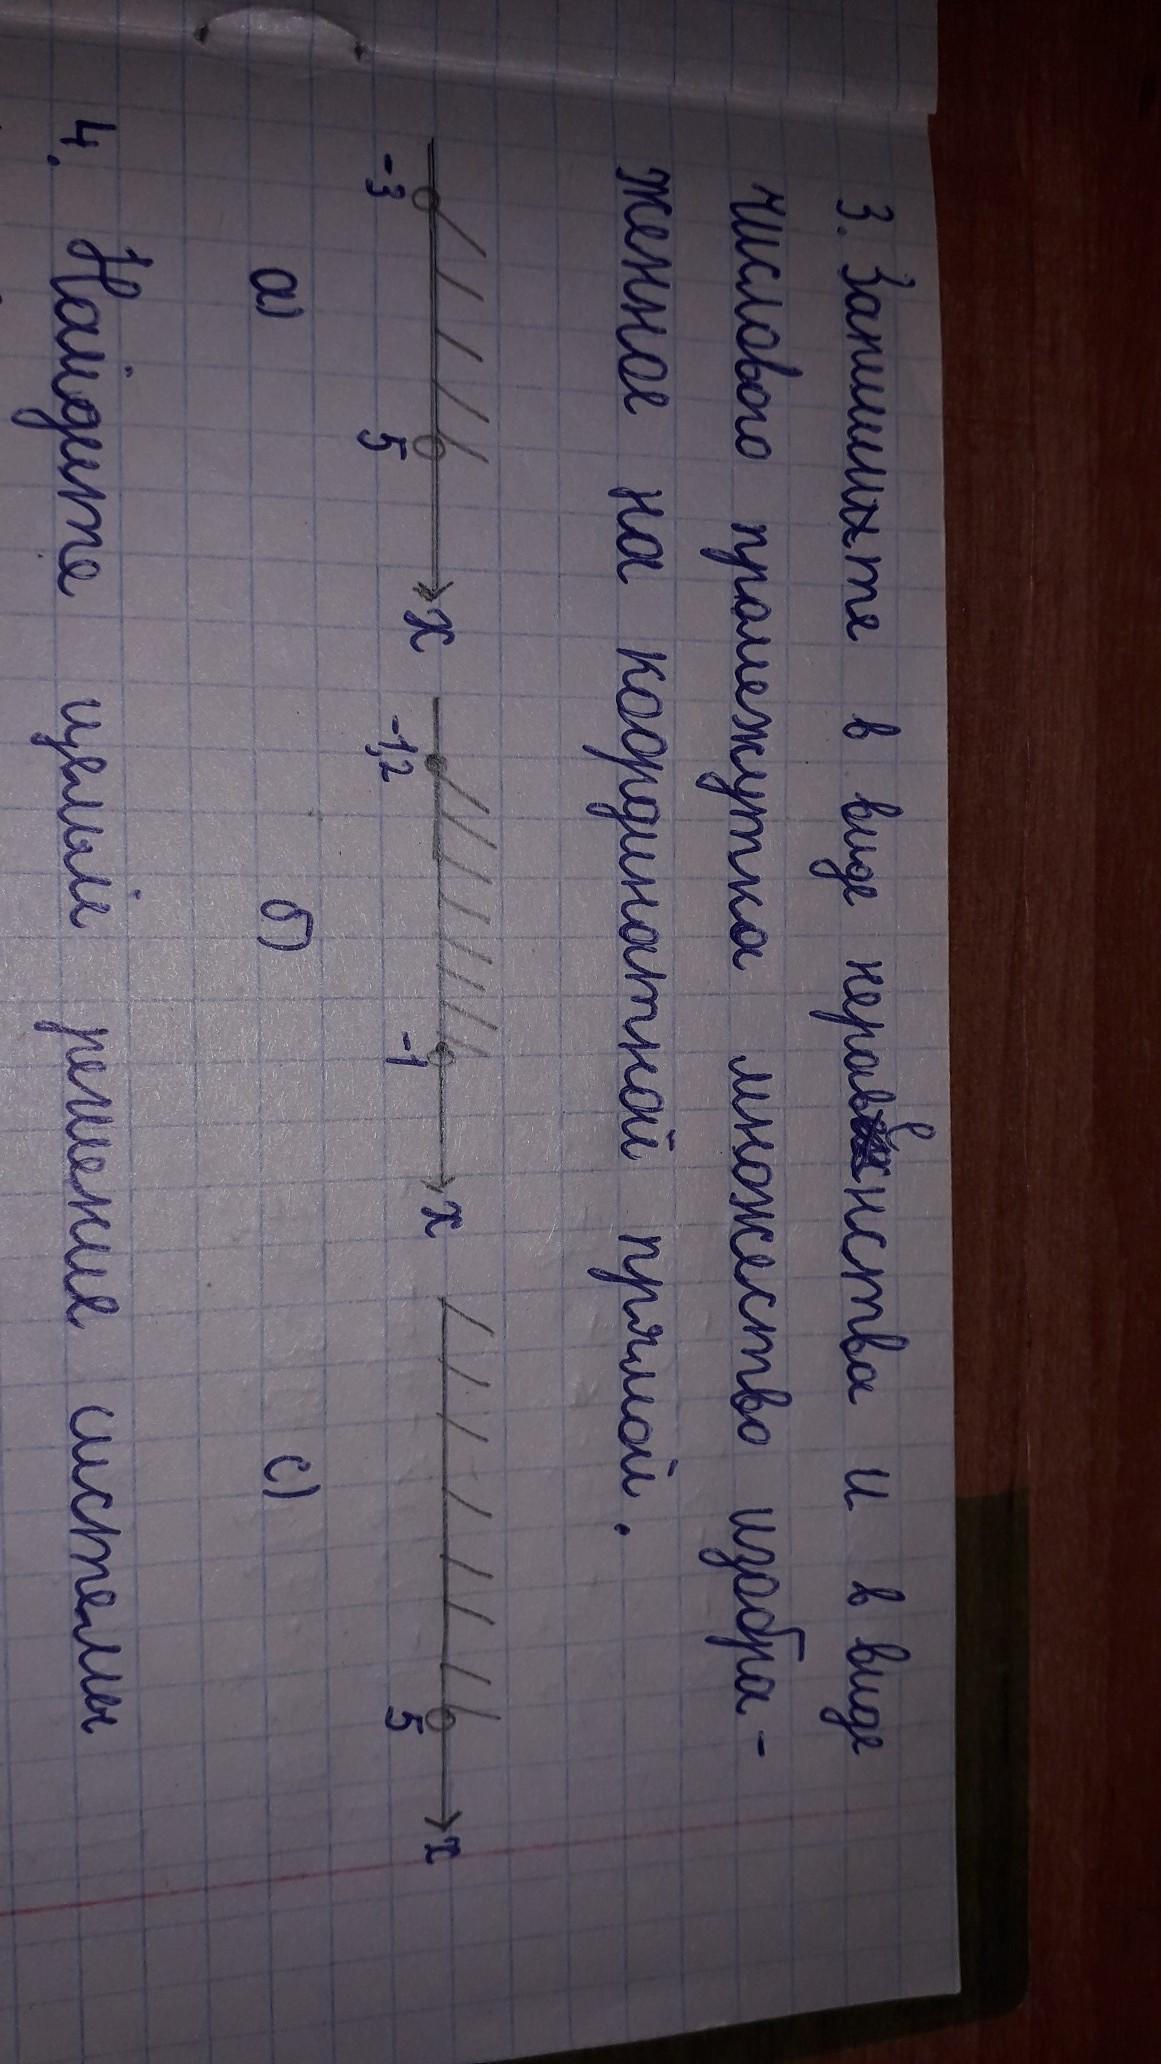 3. Запишите в виде неравенства и в виде
числового промежутка множество изобра-
женное на кординатной прямой.
-3 5 x -1,2 -1 x 5 x
а) б) с)
4. Найдите целый решения системы